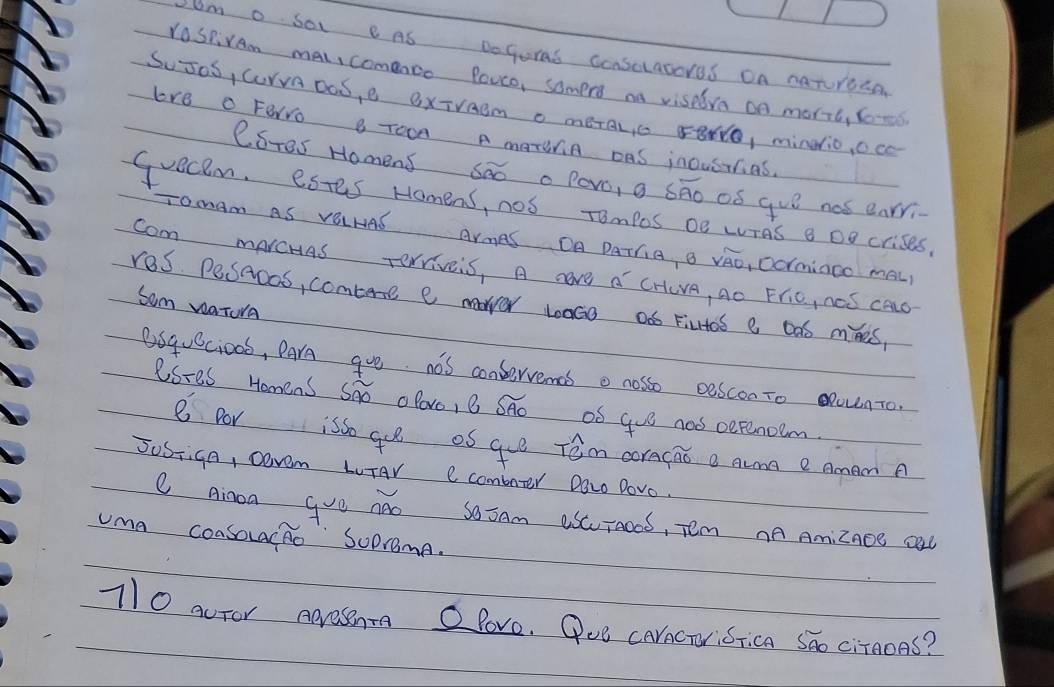 o sol e as doçuras consoladoras da natureza,
respiram mal, comendo pouco, sempre na véspera da morte, rotos,
sujos, curvados, e extraem o metal, o minério, o co-
bre o ferro e toda a matéria das indústrias.
Estes Homens são o povo, e são os que nos enri-
quecem. Estes Homens, nos tempos de lutas e de crises,
tomam as velhas armas da Patria, e vão, dormindo mal,
com marchas terríveis, a neve à chuva, ao frio, nos calo-
res pesados, combate e morrer longe dos filhos e das mães,
sem
esquecidos, para que nós conservemos o nosso descanto opulento.
Estes Homens são o povo, e são os que nos defendem.
É por isso que os que têm coração e alma e amam a
Justiça, devem lutar e combater pelo Povo.
E ainda que não sejam escutados, tem na amizade del
uma consolação suprema.
1) O autor apresenta O Povo. Que caracteristica são citadas?